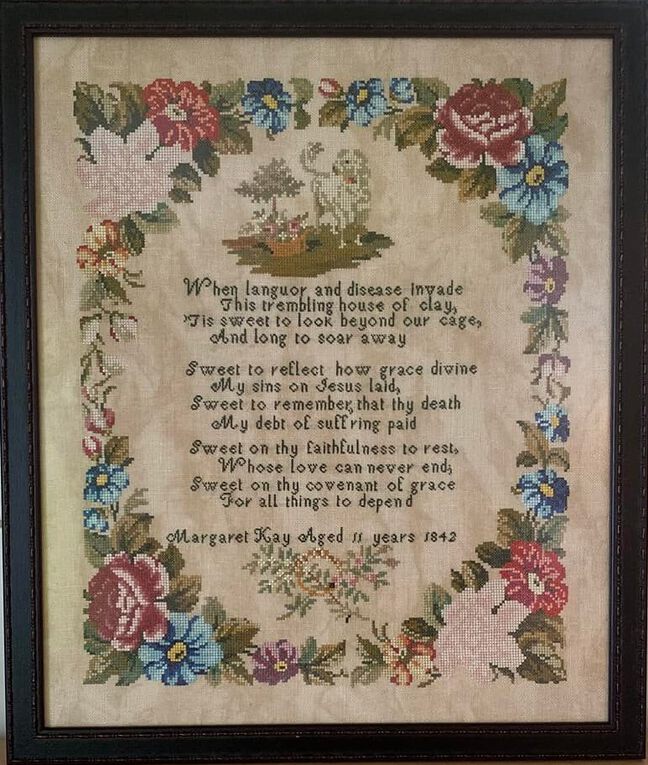 When languor and disease invade
This trembling house of clay,
'Tis sweet to look beyond our cage,
And long to soar away
Sweet to reflect how grace divine
My sins on Jesus laid,
Sweet to remember, that thy death
My debt of suff'ring paid
Sweet on thy faithfulness to rest,
Whose love can never end;
Sweet on thy covenant of grace
For all things to depend
Margaret Kay Aged 11 years 1842